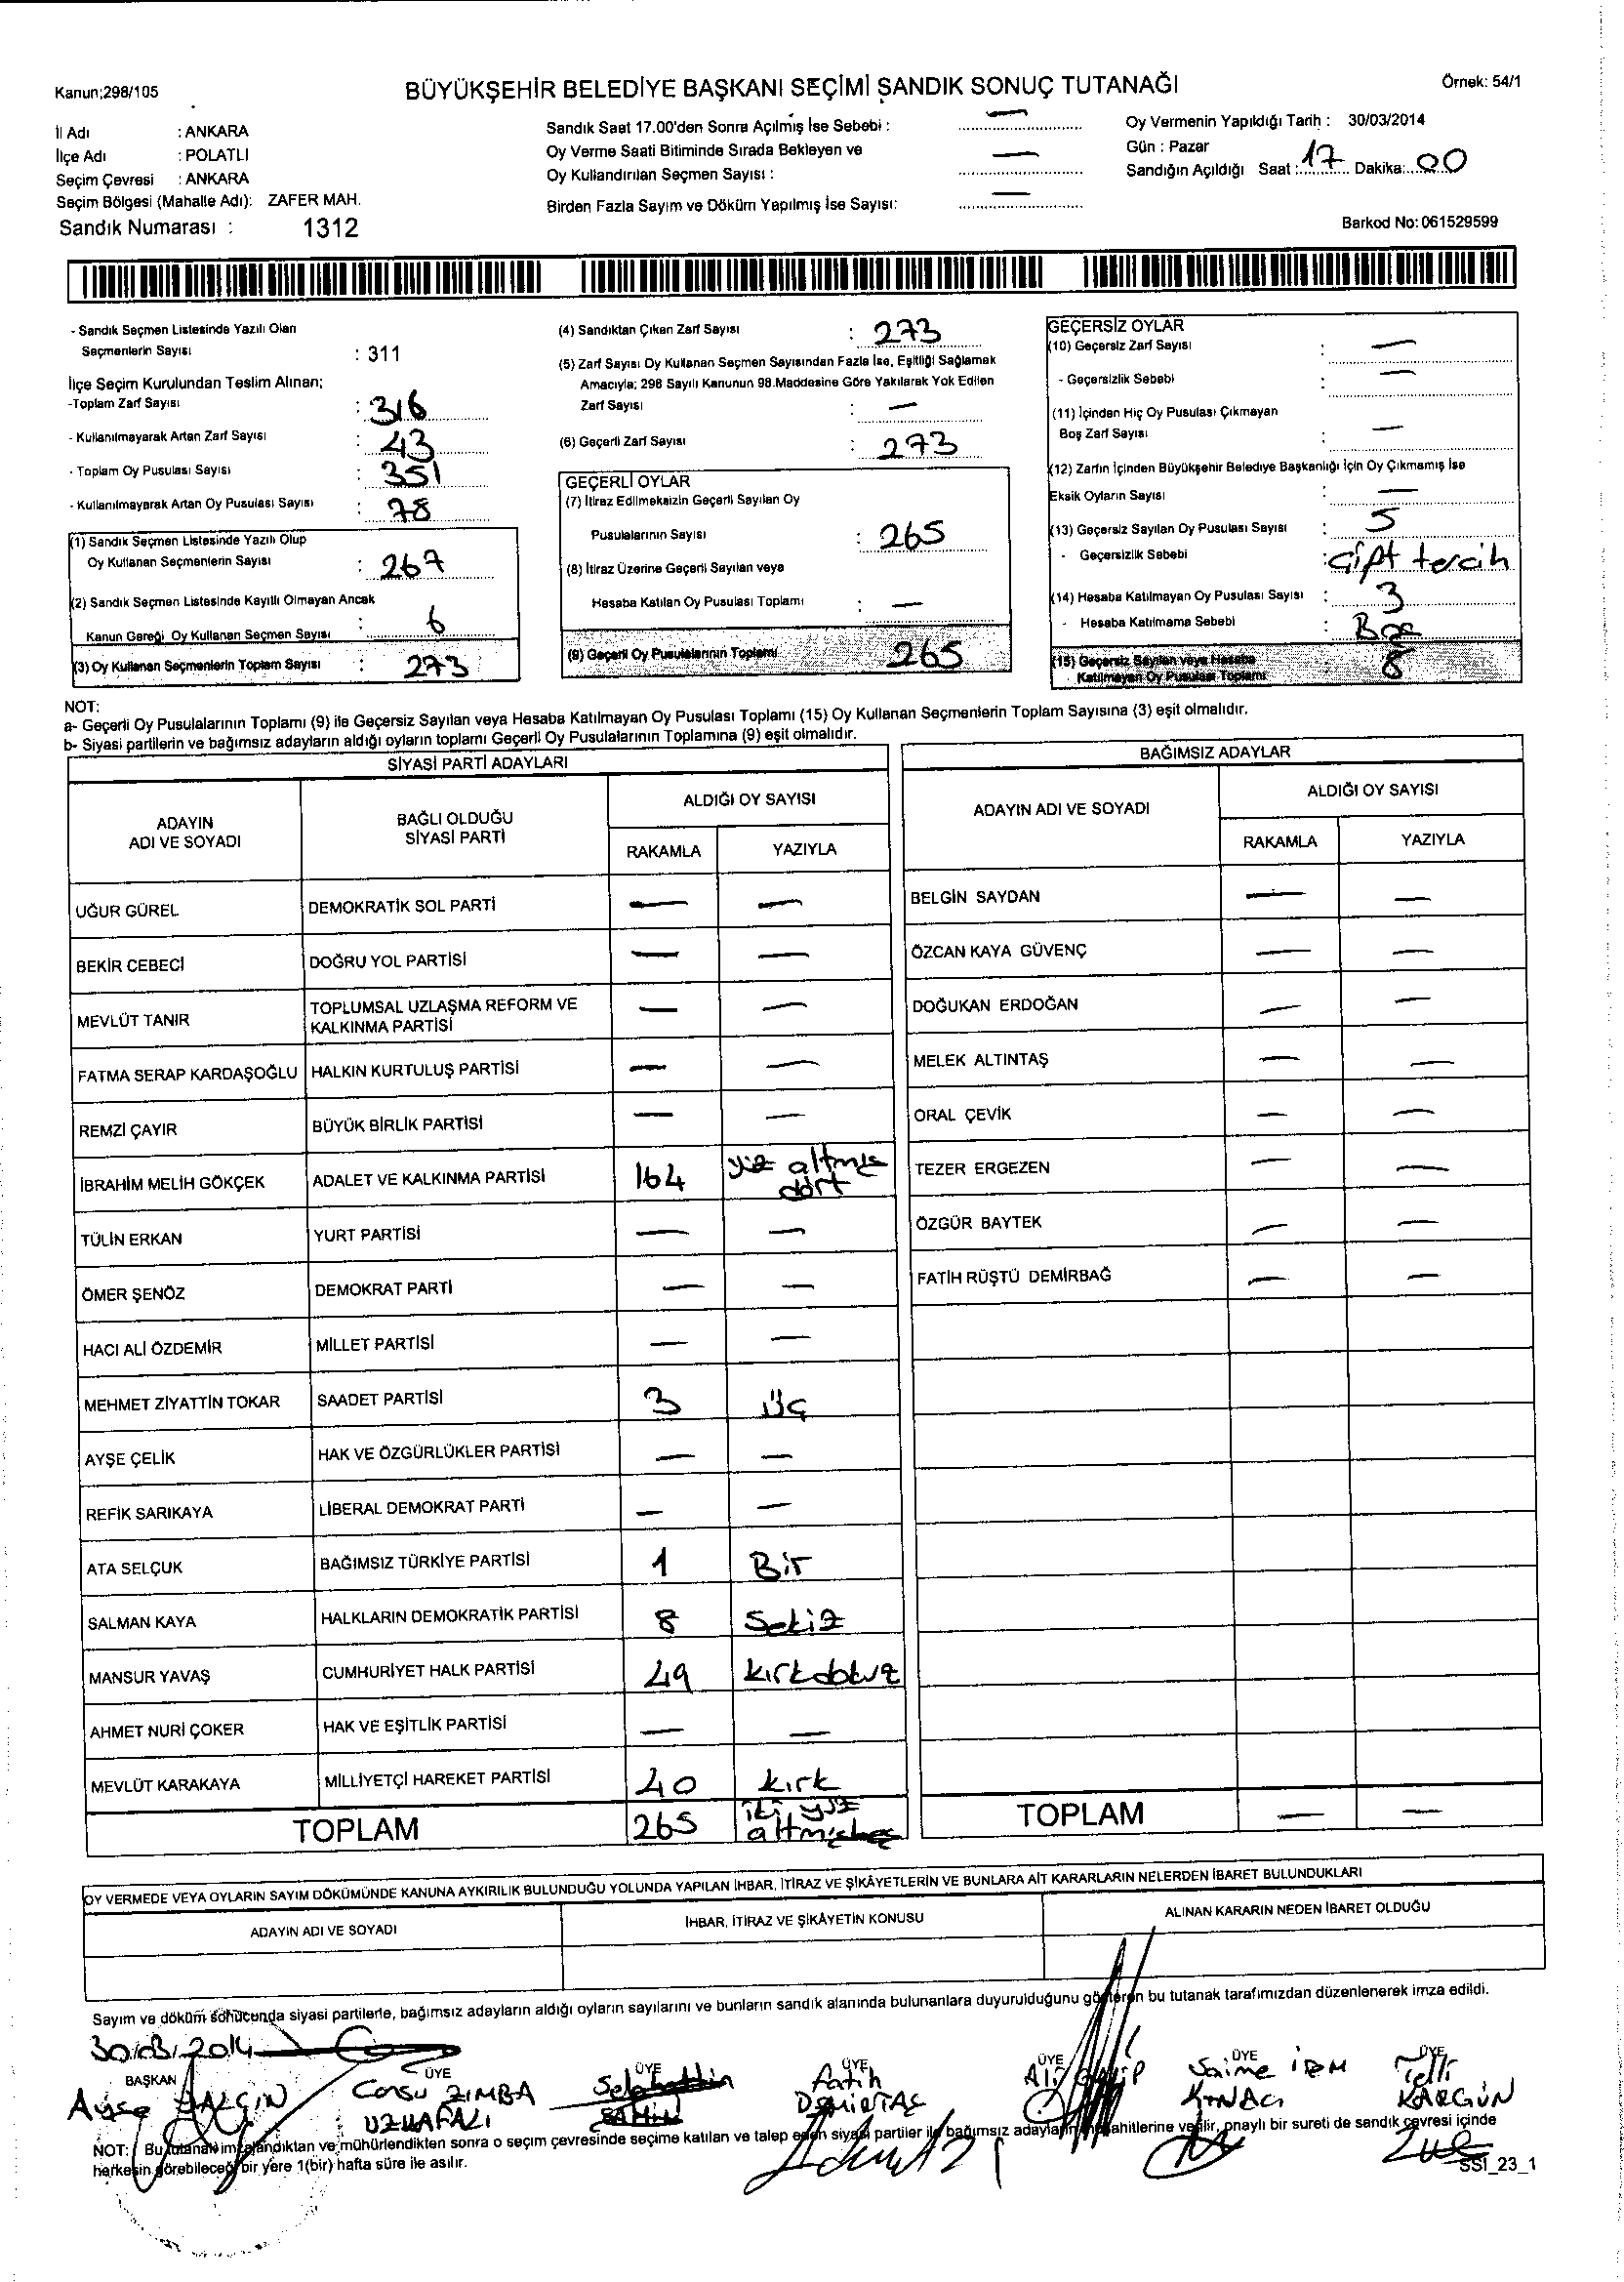 Kanun;298/105
BÜYÜKŞEHİR BELEDİYE BAŞKANI SEÇİMİ SANDIK SONUÇ TUTANAĞI
Örnek: 54/1
İl Adı : ANKARA
İlçe Adı : POLATLI
Seçim Çevresi : ANKARA
Seçim Bölgesi (Mahalle Adı): ZAFER MAH.
Sandık Numarası : 1312
Sandık Saat 17.00'den Sonra Açılmış İse Sebebi : —
Oy Verme Saati Bitiminde Sırada Bekleyen ve
Oy Kullandırılan Seçmen Sayısı : —
Birden Fazla Sayım ve Döküm Yapılmış İse Sayısı: —
Oy Vermenin Yapıldığı Tarih : 30/03/2014
Gün : Pazar
Sandığın Açıldığı Saat : 17 Dakika: 00
Barkod No: 061529599
- Sandık Seçmen Listesinde Yazılı Olan
Seçmenlerin Sayısı : 311
İlçe Seçim Kurulundan Teslim Alınan;
-Toplam Zarf Sayısı : 316
- Kullanılmayarak Artan Zarf Sayısı : 43
- Toplam Oy Pusulası Sayısı : 351
- Kullanılmayarak Artan Oy Pusulası Sayısı : 78
(1) Sandık Seçmen Listesinde Yazılı Olup
Oy Kullanan Seçmenlerin Sayısı : 267
(2) Sandık Seçmen Listesinde Kayıtlı Olmayan Ancak
Kanun Gereği Oy Kullanan Seçmen Sayısı : 6
(3) Oy Kullanan Seçmenlerin Toplam Sayısı : 273
(4) Sandıktan Çıkan Zarf Sayısı : 273
(5) Zarf Sayısı Oy Kullanan Seçmen Sayısından Fazla İse, Eşitliği Sağlamak
Amacıyla; 298 Sayılı Kanunun 98.Maddesine Göre Yakılarak Yok Edilen
Zarf Sayısı : —
(6) Geçerli Zarf Sayısı : 273
GEÇERLİ OYLAR
(7) İtiraz Edilmeksizin Geçerli Sayılan Oy
Pusulalarının Sayısı : 265
(8) İtiraz Üzerine Geçerli Sayılan veya
Hesaba Katılan Oy Pusulası Toplamı : —
(9) Geçerli Oy Pusulalarının Toplamı 265
GEÇERSİZ OYLAR
(10) Geçersiz Zarf Sayısı : —
- Geçersizlik Sebebi : —
(11) İçinden Hiç Oy Pusulası Çıkmayan
Boş Zarf Sayısı : —
(12) Zarfın İçinden Büyükşehir Belediye Başkanlığı İçin Oy Çıkmamış İse
Eksik Oyların Sayısı : —
(13) Geçersiz Sayılan Oy Pusulası Sayısı : 5
- Geçersizlik Sebebi : Çift tercih
(14) Hesaba Katılmayan Oy Pusulası Sayısı : 3
- Hesaba Katılmama Sebebi : Boş
(15) Geçersiz Sayılan veya Hesaba
Katılmayan Oy Pusulası Toplamı 8
NOT:
a- Geçerli Oy Pusulalarının Toplamı (9) ile Geçersiz Sayılan veya Hesaba Katılmayan Oy Pusulası Toplamı (15) Oy Kullanan Seçmenlerin Toplam Sayısına (3) eşit olmalıdır.
b- Siyasi partilerin ve bağımsız adayların aldığı oyların toplamı Geçerli Oy Pusulalarının Toplamına (9) eşit olmalıdır.
SİYASİ PARTİ ADAYLARI
ADAYIN ADI VE SOYADI BAĞLI OLDUĞU SİYASİ PARTİ ALDIĞI OY SAYISI
RAKAMLA YAZIYLA
UĞUR GÜREL DEMOKRATİK SOL PARTİ — —
BEKİR CEBECİ DOĞRU YOL PARTİSİ — —
MEVLÜT TANIR TOPLUMSAL UZLAŞMA REFORM VE KALKINMA PARTİSİ — —
FATMA SERAP KARDAŞOĞLU HALKIN KURTULUŞ PARTİSİ — —
REMZİ ÇAYIR BÜYÜK BİRLİK PARTİSİ — —
İBRAHİM MELİH GÖKÇEK ADALET VE KALKINMA PARTİSİ 164 yüz altmış dört
TÜLİN ERKAN YURT PARTİSİ — —
ÖMER ŞENÖZ DEMOKRAT PARTİ — —
HACI ALİ ÖZDEMİR MİLLET PARTİSİ — —
MEHMET ZİYATTİN TOKAR SAADET PARTİSİ 3 üç
AYŞE ÇELİK HAK VE ÖZGÜRLÜKLER PARTİSİ — —
REFİK SARIKAYA LİBERAL DEMOKRAT PARTİ — —
ATA SELÇUK BAĞIMSIZ TÜRKİYE PARTİSİ 1 Bir
SALMAN KAYA HALKLARIN DEMOKRATİK PARTİSİ 8 Sekiz
MANSUR YAVAŞ CUMHURİYET HALK PARTİSİ 49 kırkdokuz
AHMET NURİ ÇOKER HAK VE EŞİTLİK PARTİSİ — —
MEVLÜT KARAKAYA MİLLİYETÇİ HAREKET PARTİSİ 40 kırk
TOPLAM 265 iki yüz altmışbeş
BAĞIMSIZ ADAYLAR
ADAYIN ADI VE SOYADI ALDIĞI OY SAYISI
RAKAMLA YAZIYLA
BELGİN SAYDAN — —
ÖZCAN KAYA GÜVENÇ — —
DOĞUKAN ERDOĞAN — —
MELEK ALTINTAŞ — —
ORAL ÇEVİK — —
TEZER ERGEZEN — —
ÖZGÜR BAYTEK — —
FATİH RÜŞTÜ DEMİRBAĞ — —
TOPLAM — —
OY VERMEDE VEYA OYLARIN SAYIM DÖKÜMÜNDE KANUNA AYKIRILIK BULUNDUĞU YOLUNDA YAPILAN İHBAR, İTİRAZ VE ŞİKÂYETLERİN VE BUNLARA AİT KARARLARIN NELERDEN İBARET BULUNDUKLARI
ADAYIN ADI VE SOYADI İHBAR, İTİRAZ VE ŞİKÂYETİN KONUSU ALINAN KARARIN NEDEN İBARET OLDUĞU
Sayım ve döküm sonucunda siyasi partilerle, bağımsız adayların aldığı oyların sayılarını ve bunların sandık alanında bulunanlara duyurulduğunu gösteren bu tutanak tarafımızdan düzenlenerek imza edildi.
30/03/2014
BAŞKAN ÜYE ÜYE ÜYE ÜYE ÜYE ÜYE
Ayşe Cansu ZIMBA Selahattin Fatih Ali Saime Telli
UZUAFALI ŞAHİN DEMİRTAŞ KARGÜN
NOT: Bu tutanak imzalandıktan ve mühürlendikten sonra o seçim çevresinde seçime katılan ve talep eden siyasi partiler ile bağımsız adayların müşahitlerine verilir, onaylı bir sureti de sandık çevresi içinde
herkesin görebileceği bir yere 1(bir) hafta süre ile asılır.
SSI_23_1